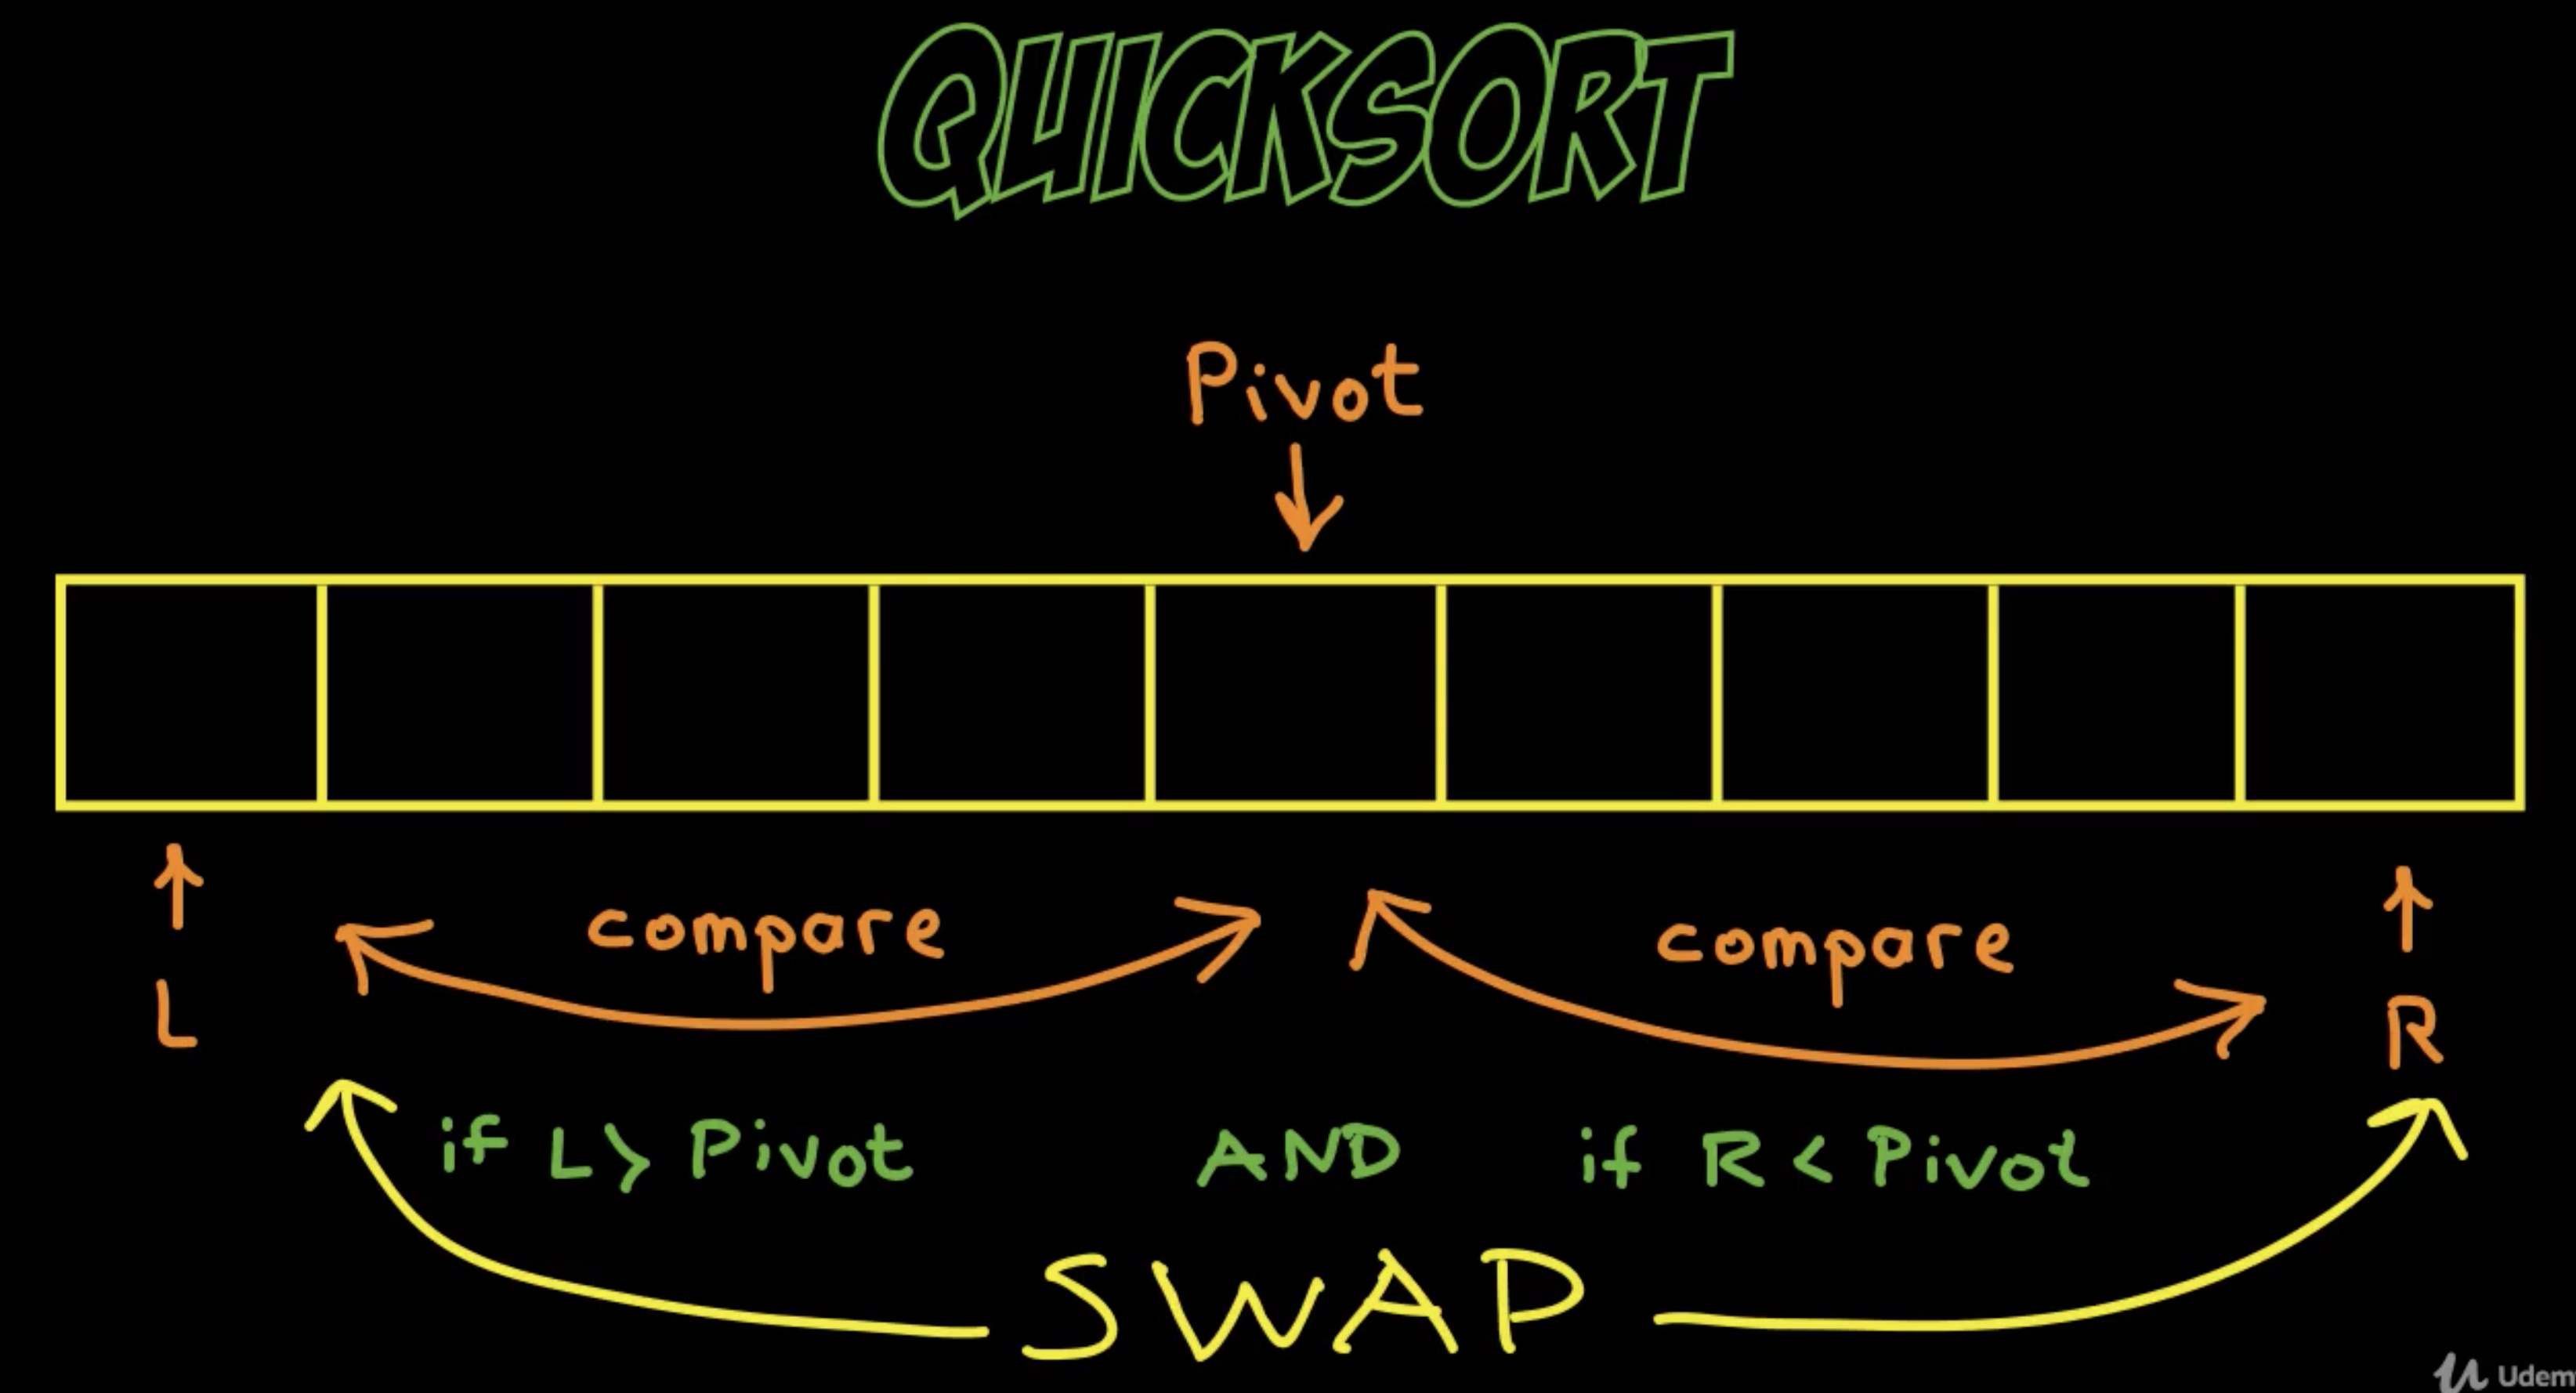 QUICKSORT
Pivot
compare compare
L R
if L > Pivot AND if R < Pivot
SWAP
Udem